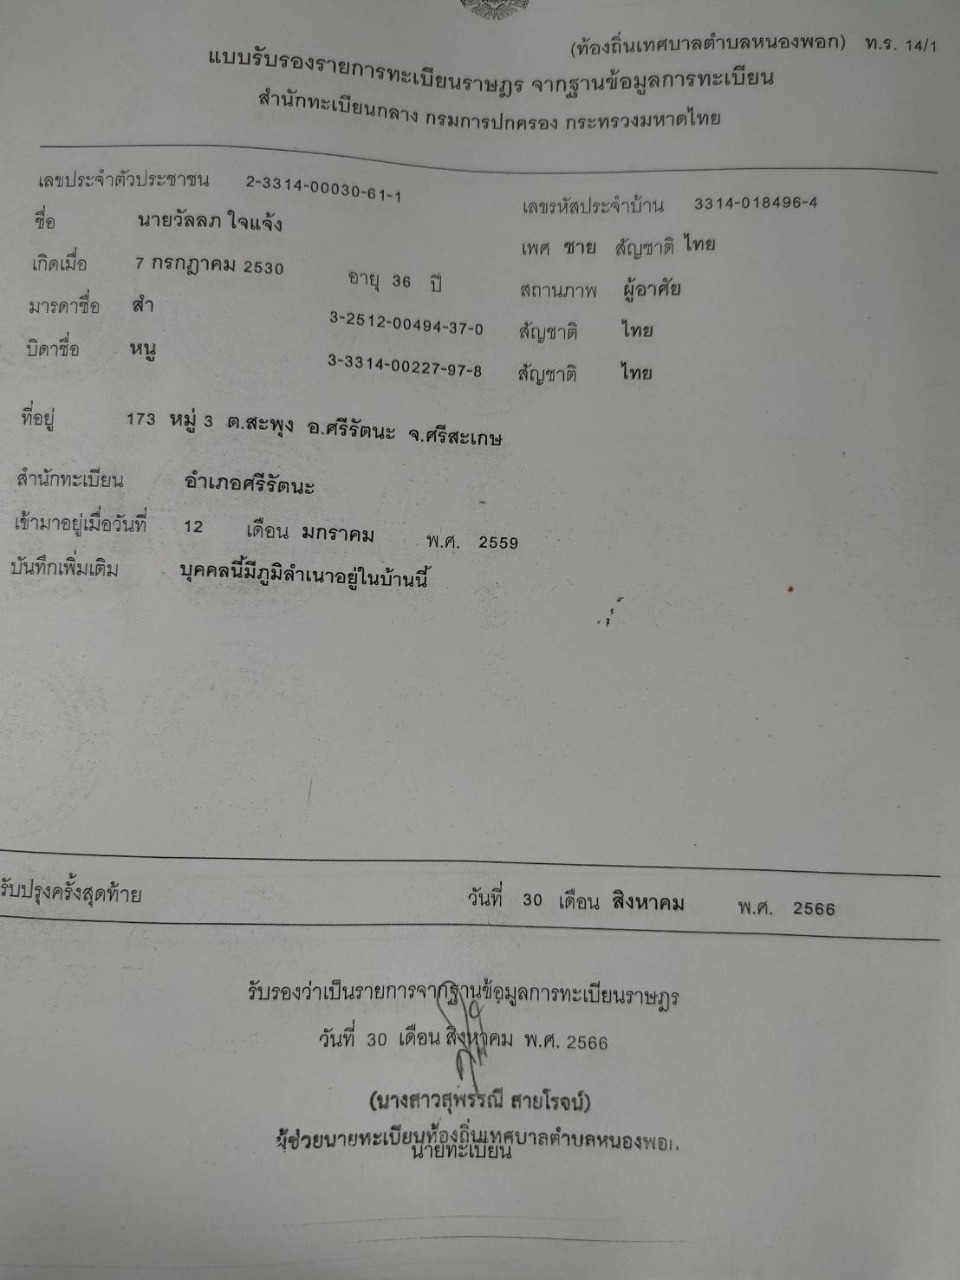 (ท้องถิ่นเทศบาลตำบลหนองพอก) ท.ร. 14/1
แบบรับรองรายการทะเบียนราษฎร จากฐานข้อมูลการทะเบียน
สำนักทะเบียนกลาง กรมการปกครอง กระทรวงมหาดไทย
เลขประจำตัวประชาชน 2-3314-00030-61-1 เลขรหัสประจำบ้าน 3314-018496-4
ชื่อ นายวัลลภ ใจแจ้ง เพศ ชาย สัญชาติ ไทย
เกิดเมื่อ 7 กรกฎาคม 2530 อายุ 36 ปี สถานภาพ ผู้อาศัย
มารดาชื่อ สำ 3-2512-00494-37-0 สัญชาติ ไทย
บิดาชื่อ หนู 3-3314-00227-97-8 สัญชาติ ไทย
ที่อยู่ 173 หมู่ 3 ต.สะพุง อ.ศรีรัตนะ จ.ศรีสะเกษ
สำนักทะเบียน อำเภอศรีรัตนะ
เข้ามาอยู่เมื่อวันที่ 12 เดือน มกราคม พ.ศ. 2559
บันทึกเพิ่มเติม บุคคลนี้มีภูมิลำเนาอยู่ในบ้านนี้
รับปรุงครั้งสุดท้าย วันที่ 30 เดือน สิงหาคม พ.ศ. 2566
รับรองว่าเป็นรายการจากฐานข้อมูลการทะเบียนราษฎร
วันที่ 30 เดือน สิงหาคม พ.ศ. 2566
(นางสาวสุพรรณี สายโรจน์)
ผู้ช่วยนายทะเบียนท้องถิ่นเทศบาลตำบลหนองพอก
นายทะเบียน